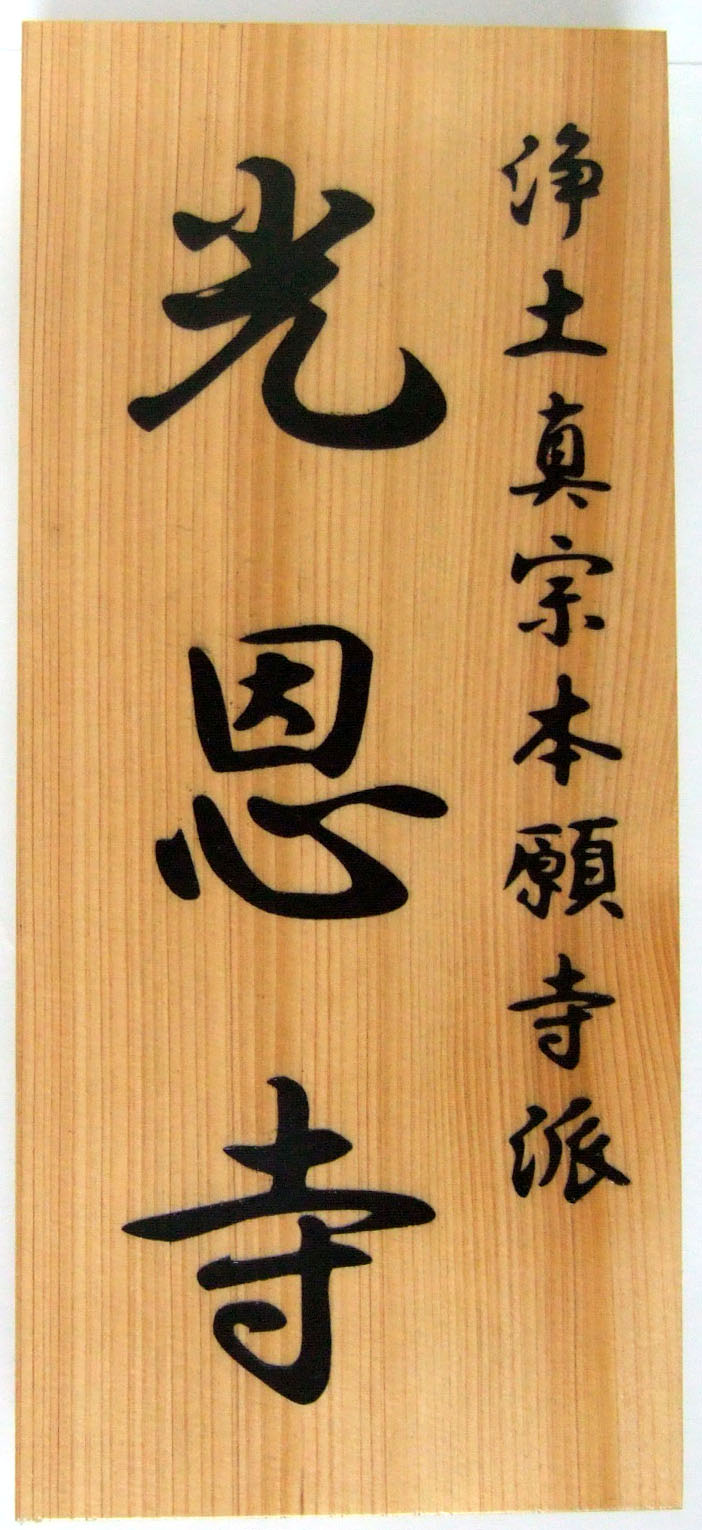 浄土真宗本願寺派
光恩寺